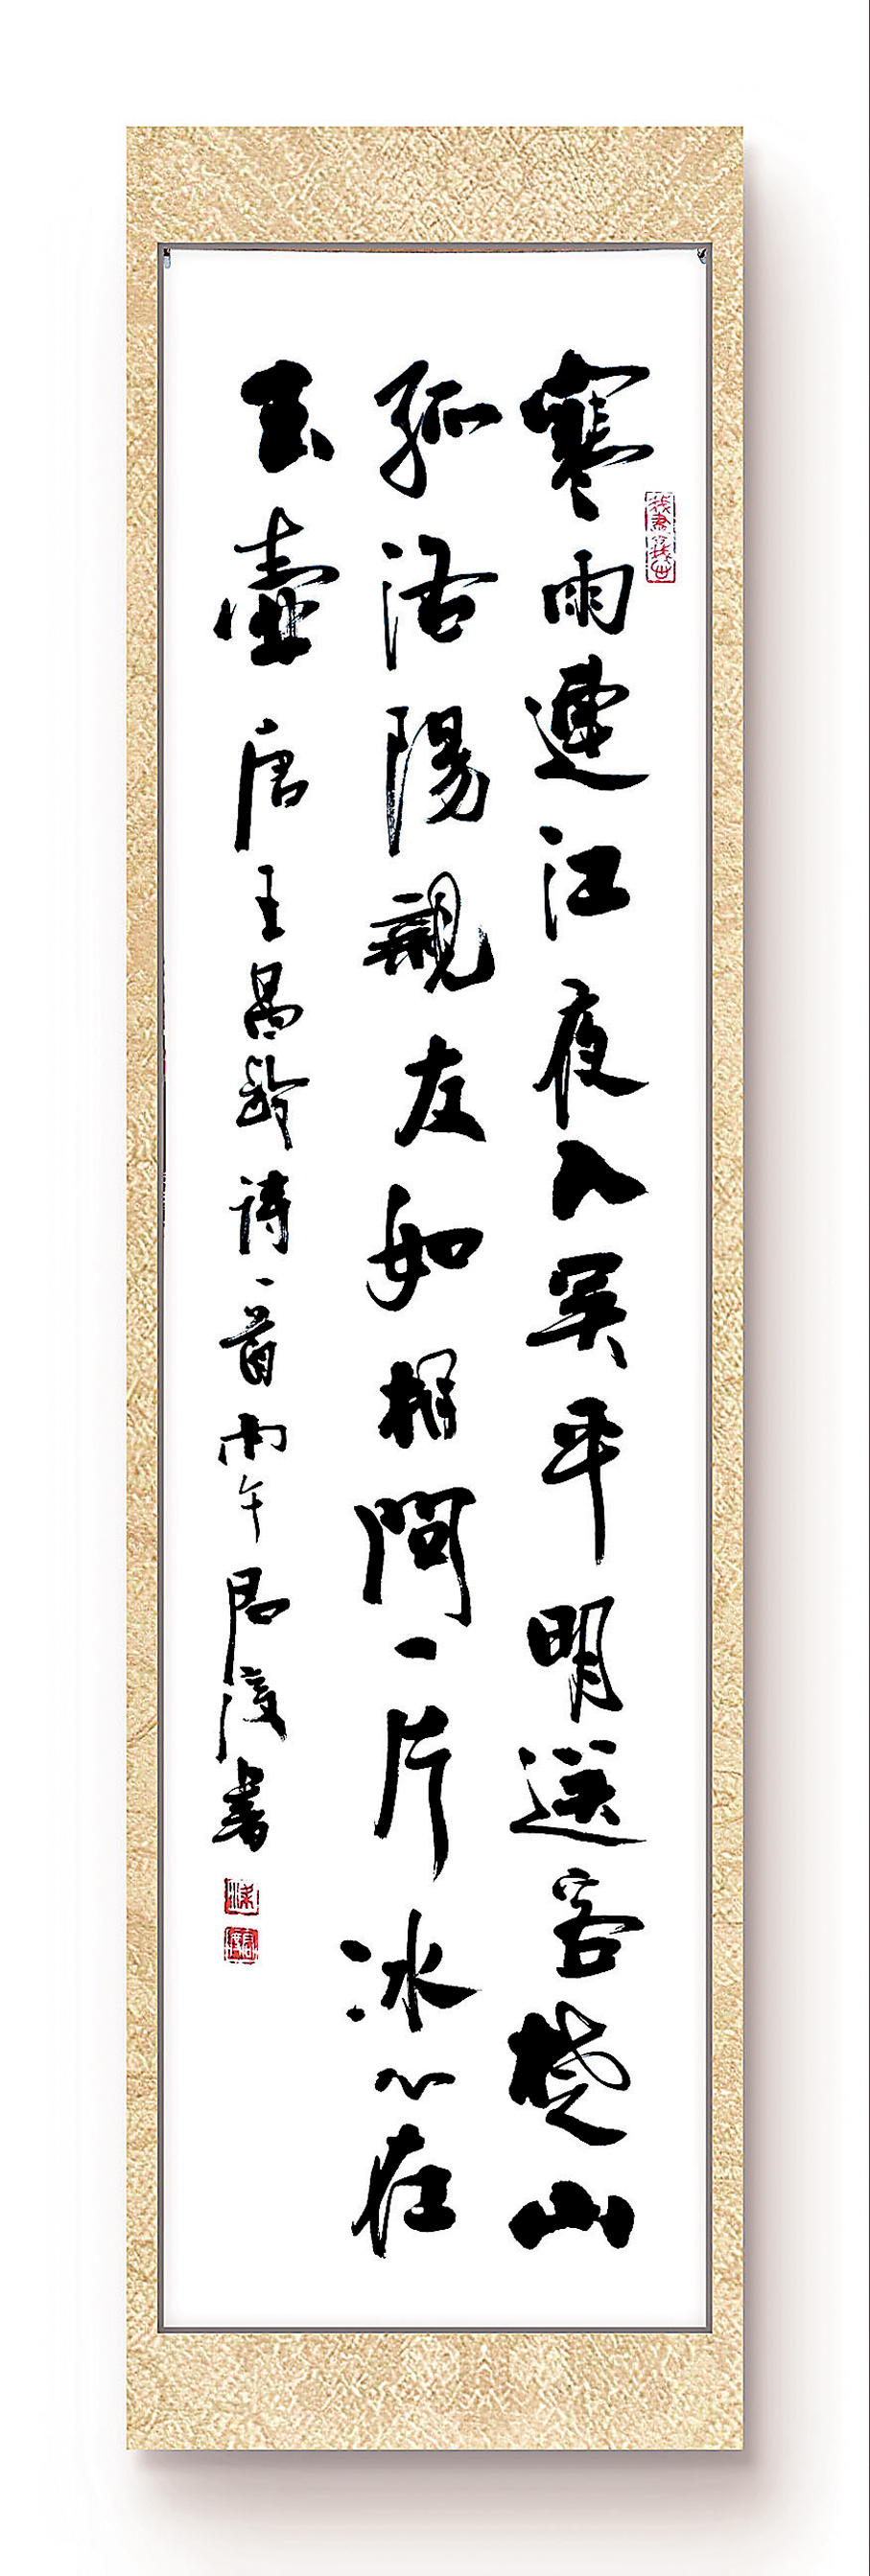 寒雨連江夜入吳平明送客楚山
孤洛陽親友如相問一片冰心在
玉壺 唐王昌齡詩一首 丙午 書